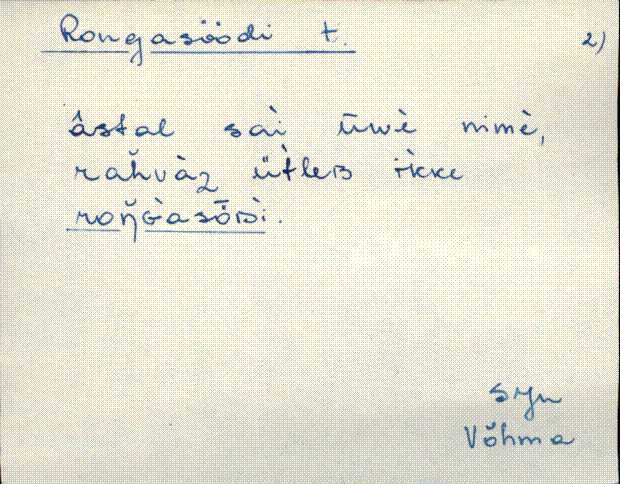 Rongasöödi t.
2)
âstal sài ūwè nimè,
rah̆vàz ütleʙ ìkke
roŋ̆ɢàsȫᴅì.
SJn
Võhma